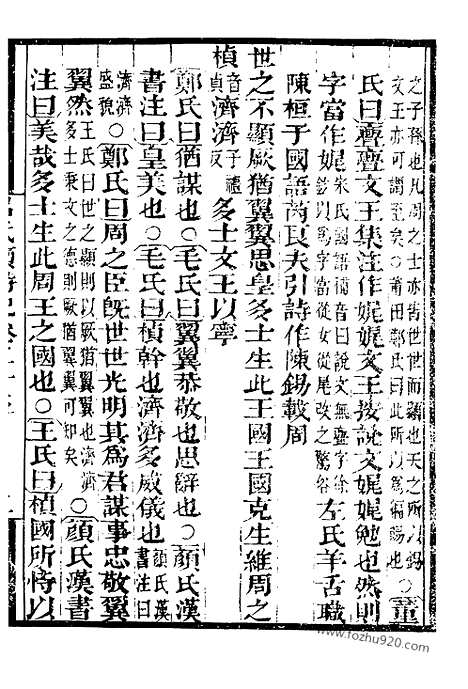 之子孫也凡周之士亦皆世世而顯也天之所以錫
文王亦可謂至矣○莆田鄭氏曰此所以為錫賜也○董
氏曰亹亹文王集注作娓娓文王按說文娓娓勉也然則
字當作娓朱氏國語補音曰說文無亹字徐鉉以為字當從女從尾改之驚俗左氏羊舌職
陳桓子國語芮良夫引詩作陳錫載周
世之不顯厥猶翼翼思皇多士生此王國王國克生維周之
楨音貞濟濟子禮反多士文王以寧
鄭氏曰猶謀也○毛氏曰翼翼恭敬也思辭也○顏氏漢
書注曰皇美也○毛氏曰楨幹也濟濟多威儀也顏氏漢書注曰
濟濟盛貌○鄭氏曰周之臣既世世光明其為君謀事忠敬翼
翼然王氏曰世之顯則以厥猶翼翼也濟濟多士秉文之德則厥猶翼翼可知矣○顏氏漢書
注曰美哉多士生此周王之國也○王氏曰楨國所恃以
www.fozhu920.com